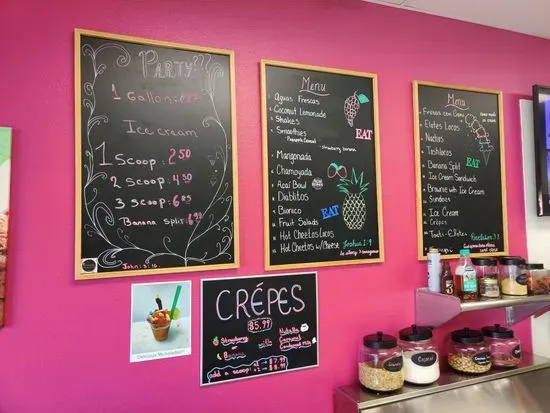 PARTY???
1 Gallon:
Ice cream
1 Scoop: 2.50
2 Scoop: 4.50
3 Scoop: 6.85
Banana split: 6.99
John: 3:16
Menu
Aguas Frescas
Coconut Lemonade
Shakes
Smoothies
Strawberry banana
Mangonada
Chamoyada
Acai Bowl
Diablitos
Bionico
Fruit Salads
Hot Cheetos Locos
Hot Cheetos w/Cheese
EAT
EAT
Joshua 1:9
Menu
Fresas con Crema
Elotes Locos
Nachos
Tostilocos
Banana Split
Ice Cream Sandwich
Brownie with Ice Cream
Sundaes
Ice Cream
Crepes
Tosti-Elotes
EAT
CRÉPES
$5.99
Strawberry
or
Banana
with
Nutella
Caramel
Condensed Milk
add a scoop: